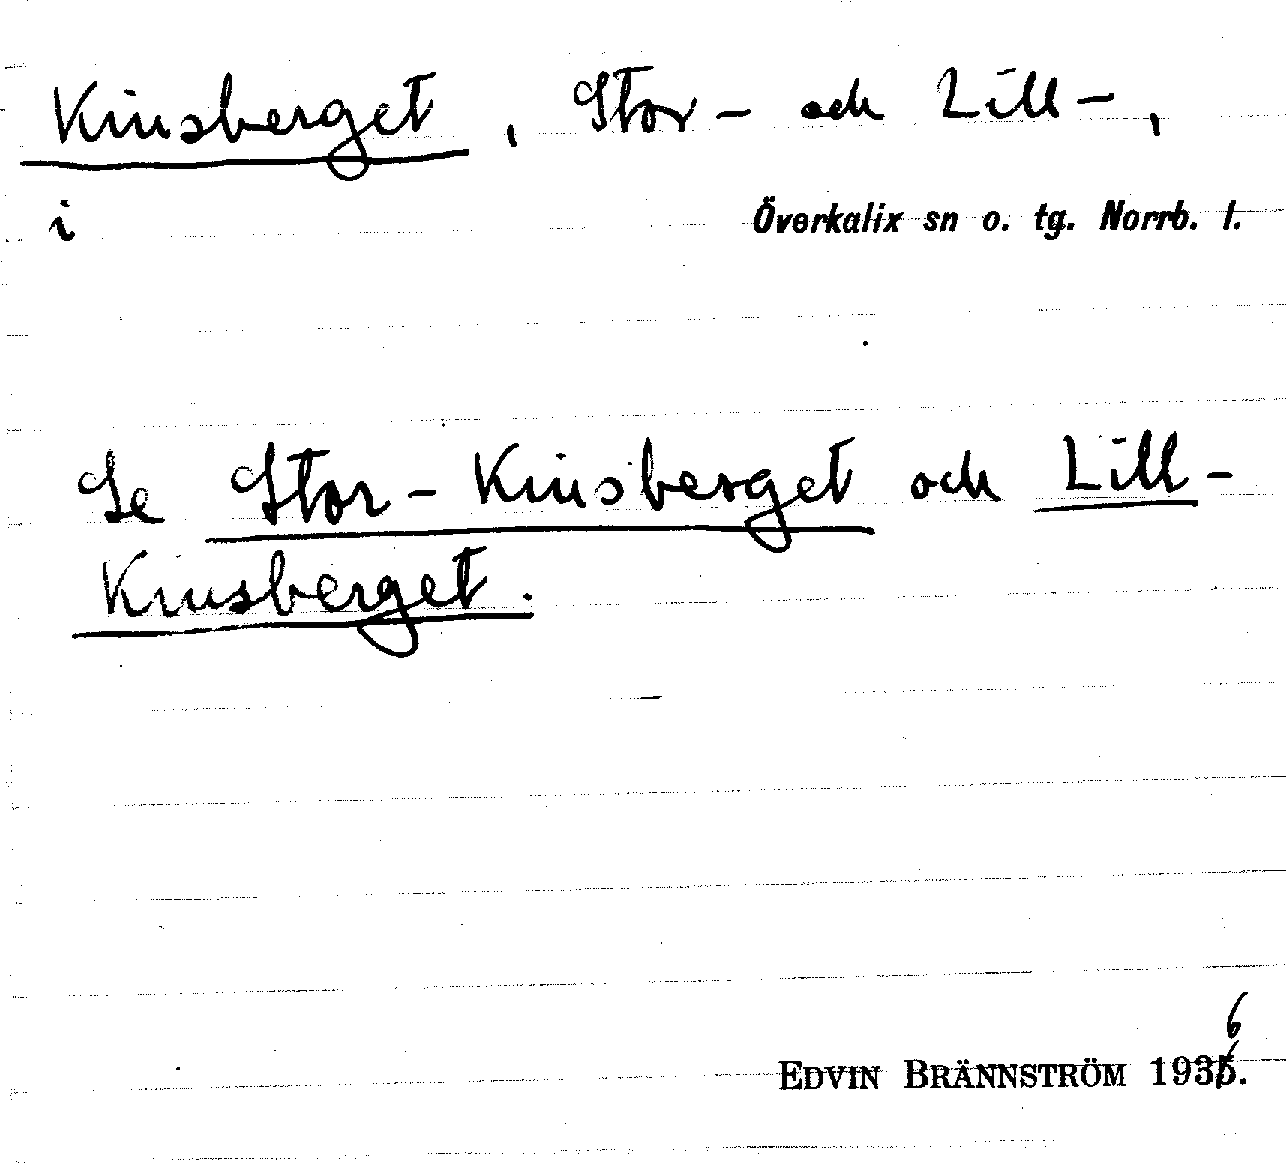 Kinsberget, Stor- och Lill-,
i Överkalix sn o. tg. Norrb. l.
Se Stor-Kinsberget och Lill-
Kinsberget.
6
EDVIN BRÄNNSTRÖM 1935.